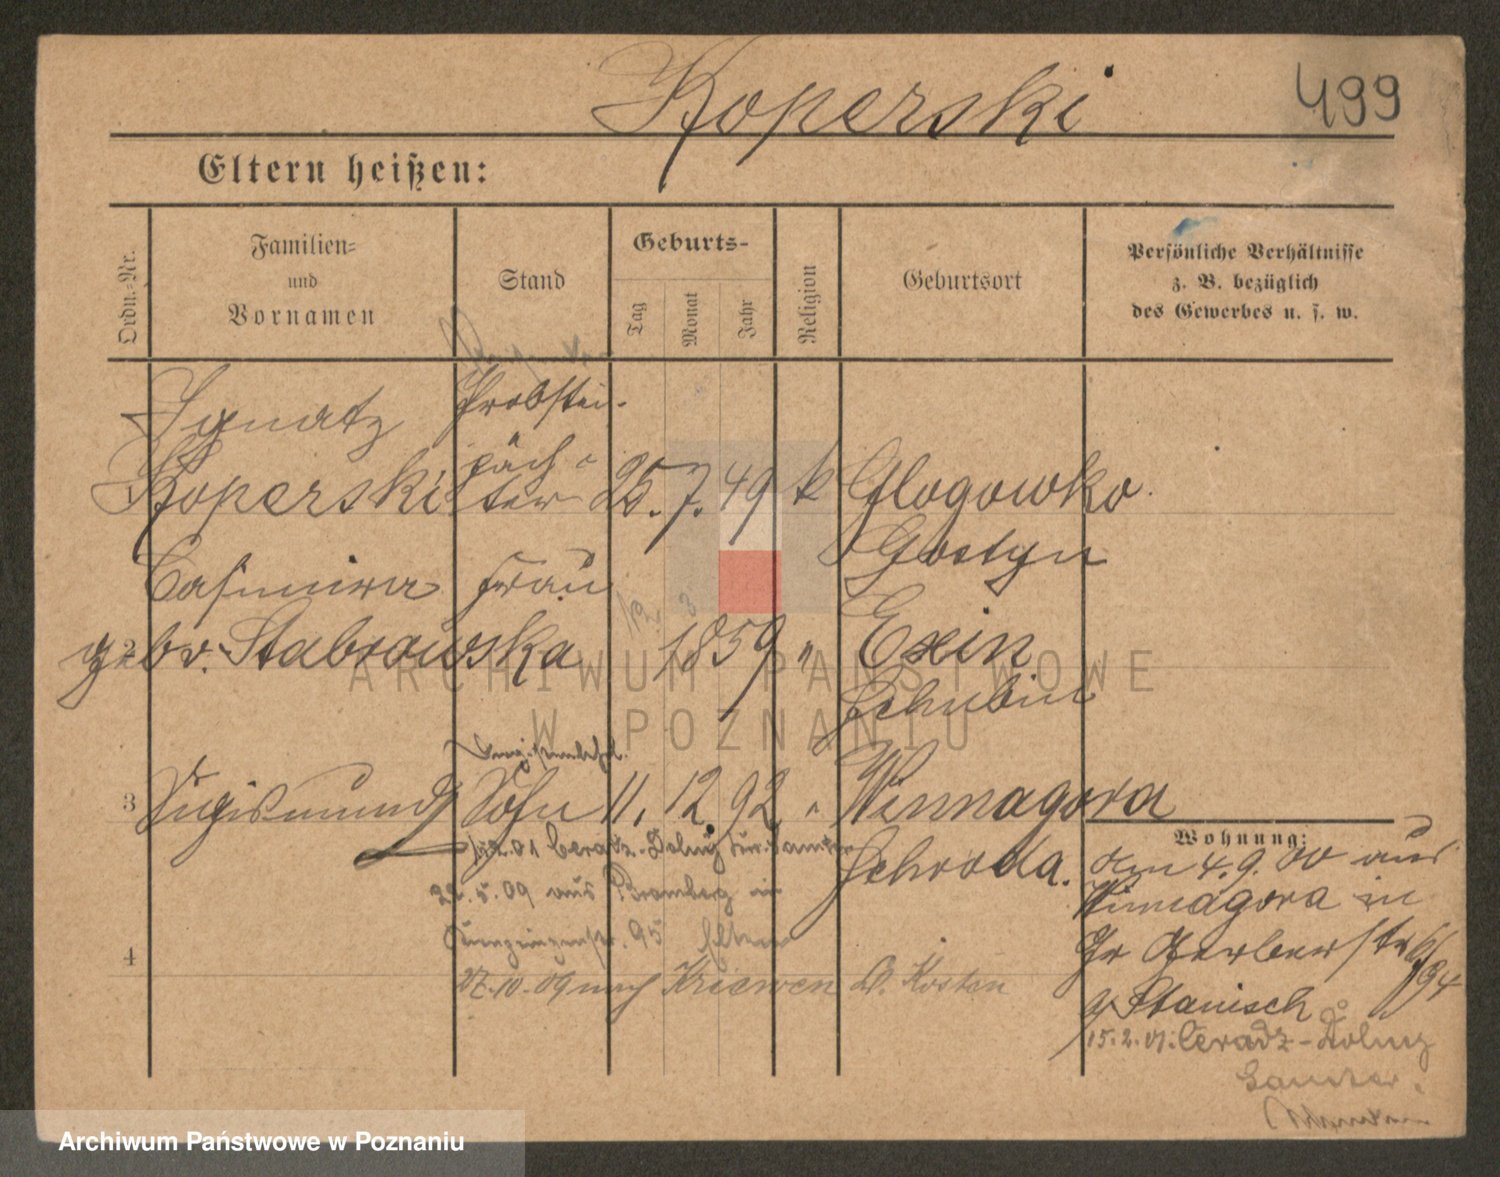 Koperski
499
Eltern heißen:
Ordn.-Nr.
Familien-
und
Vornamen
Stand
Geburts-
Tag
Monat
Jahr
Religion
Geburtsort
Persönliche Verhältnisse
z. B. bezüglich
des Gewerbes u. s. w.
Ignatz
Koperski
Probstei-
päch-
ter
25. 7. 49
k
Glogowko
Gostyn
Casimira
geb. v. Stabrowska
Frau
12. 3
1859
"
Exin
Schubin
2
3
Sigismund
Sohn
11. 12. 92
"
Winnagora
Schroda.
2.01 Ceradz-Dolny Kr. Samter
22.5.09 aus Bromberg in
95 Eltern
4
27.10.09 nach Kriewen K. Kosten
Wohnung:
Am 4.9.00 aus
Winnagora in
Gr Gerberstr
b/ Stanisch
15.2.01. Ceradz-Dolny
Samter.
ARCHIWUM PAŃSTWOWE
W POZNANIU
Archiwum Państwowe w Poznaniu